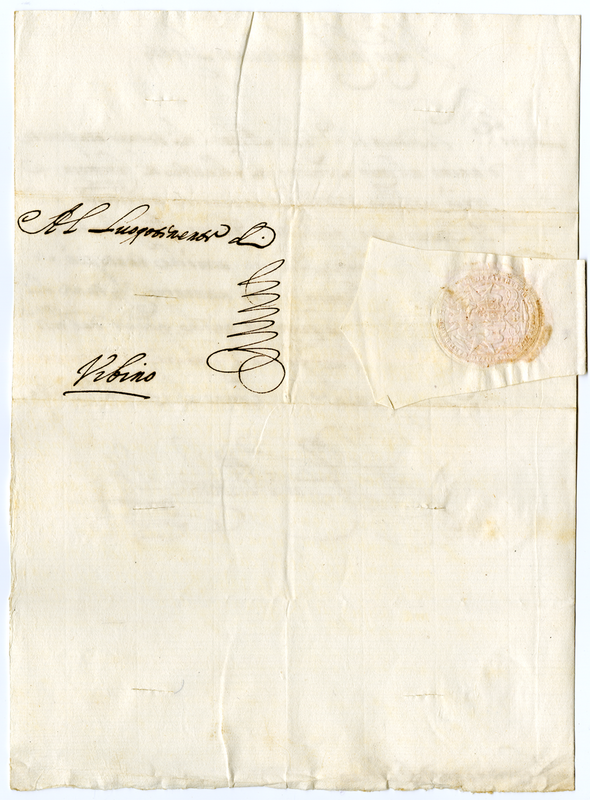 Al Luogotenente di
Vrbino